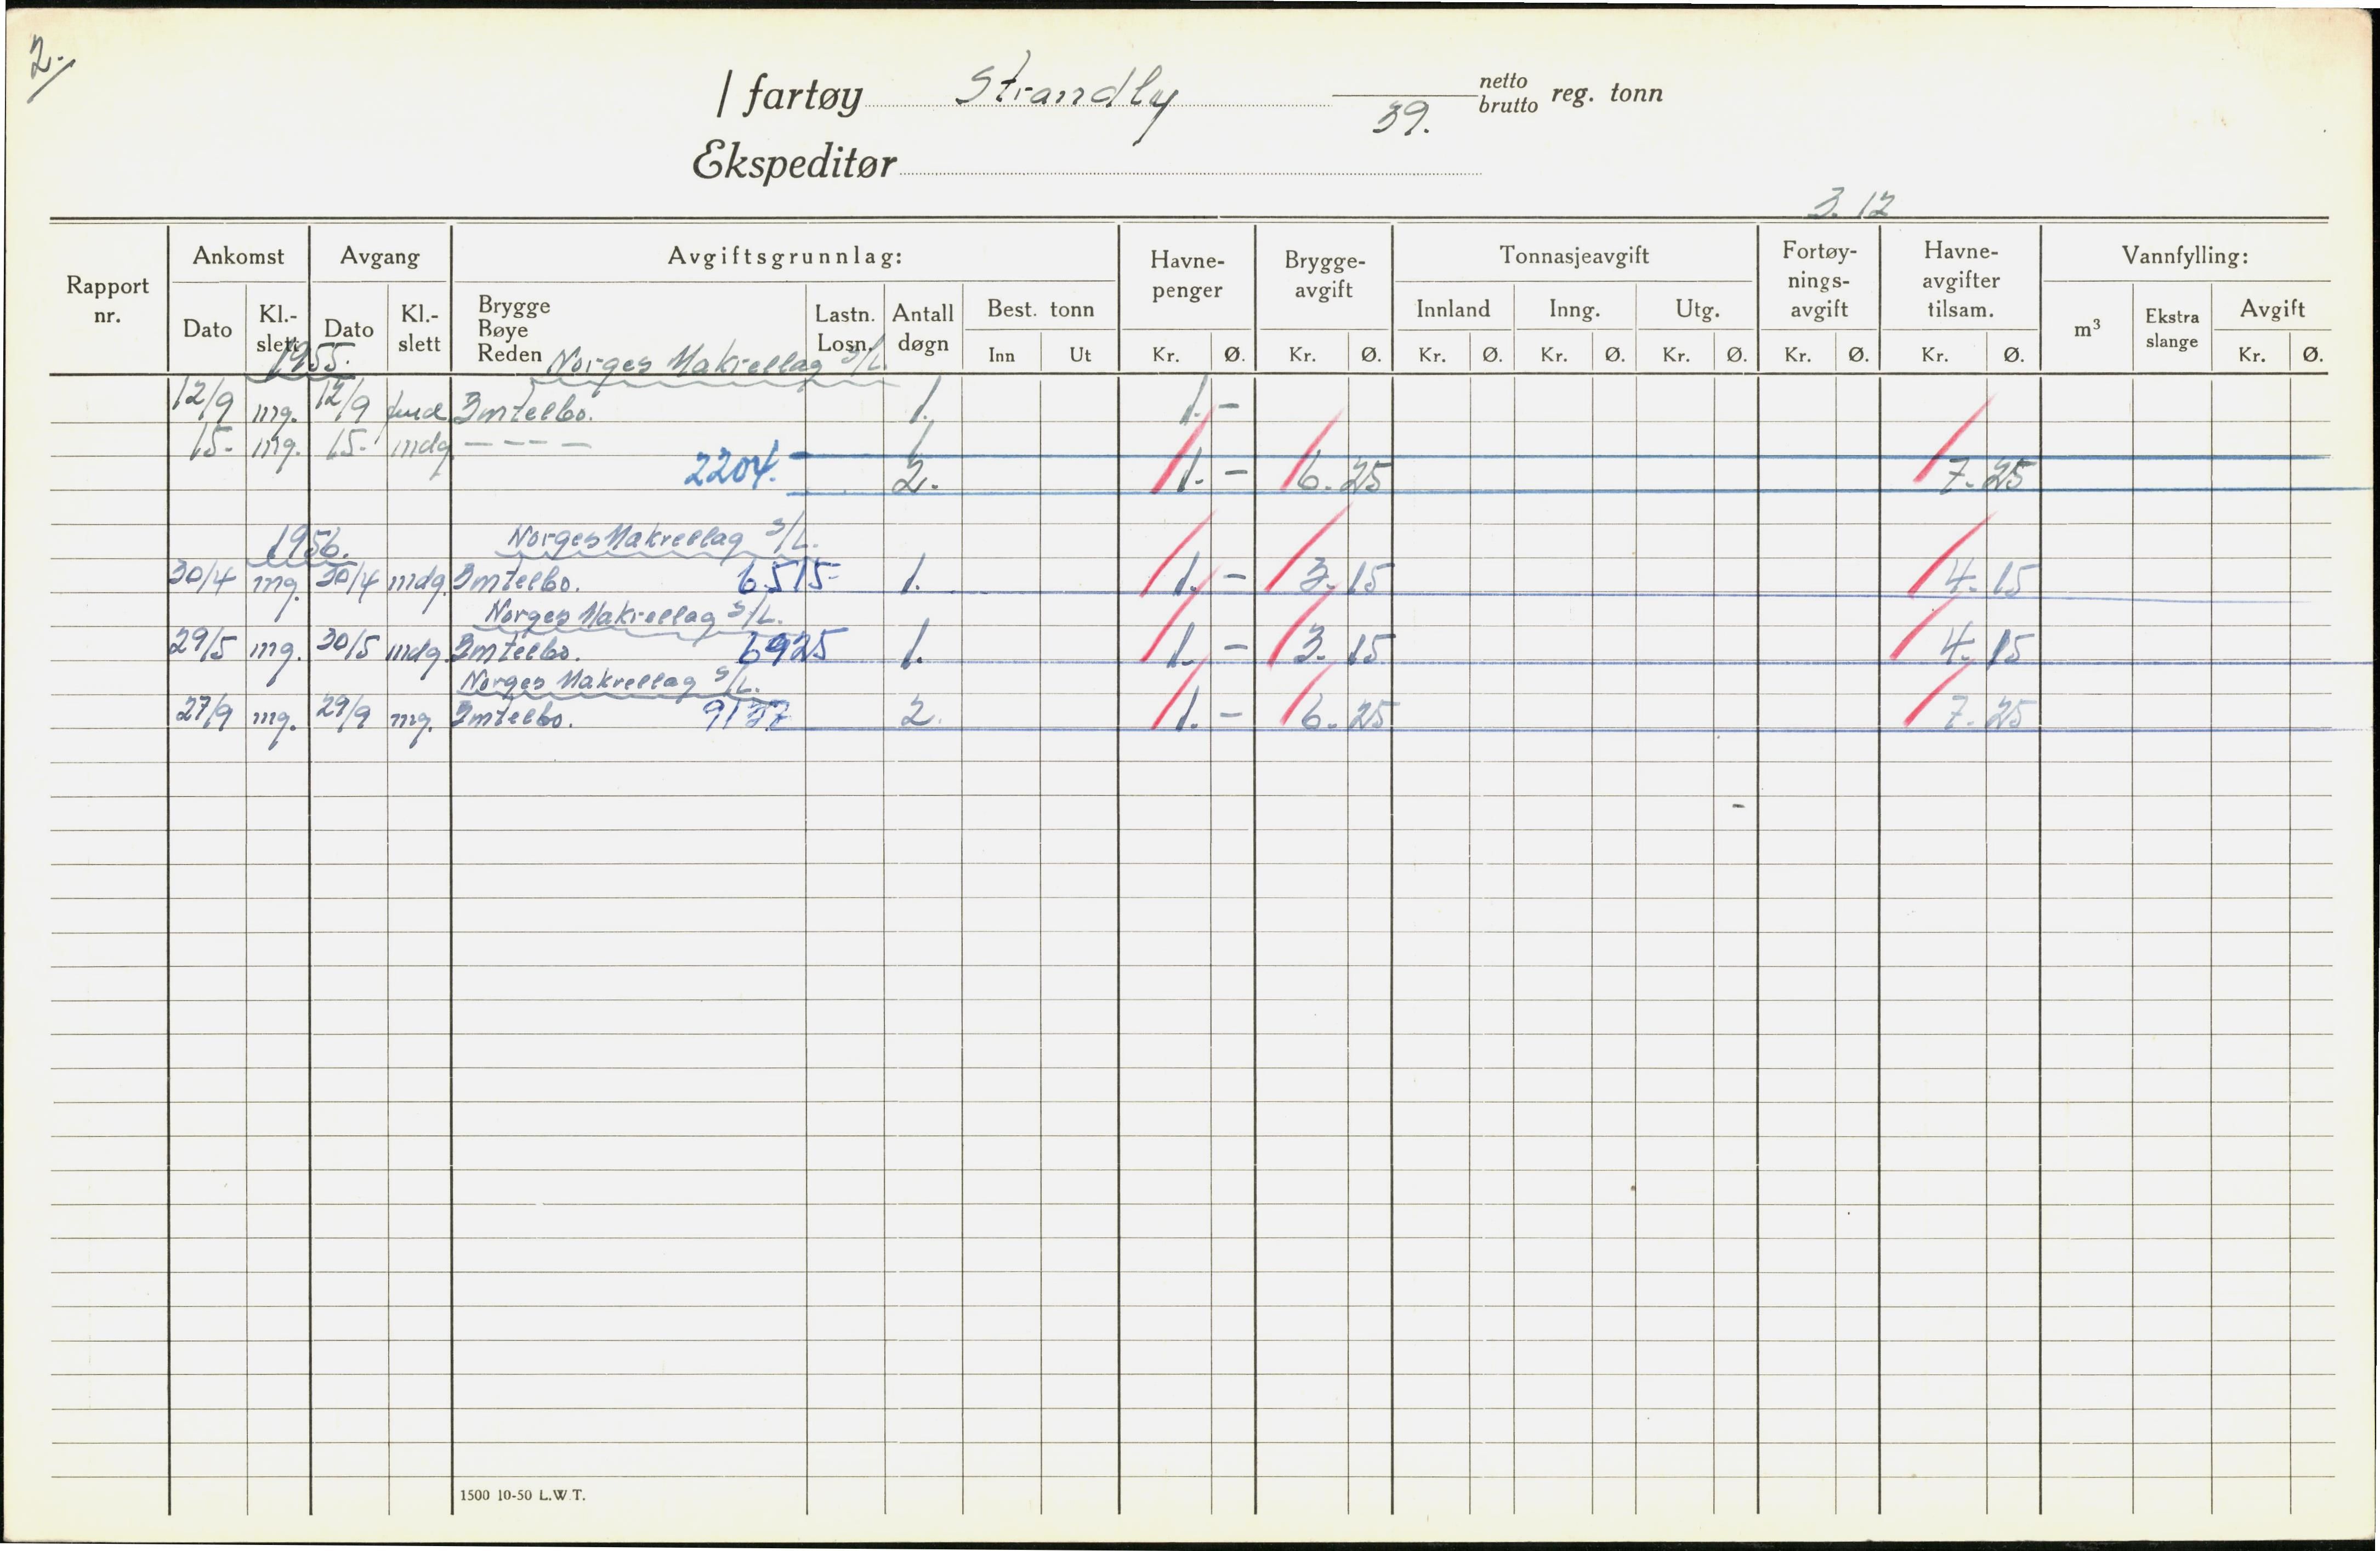 2.
/ fartøy Strandly netto brutto reg. tonn
39.
Ekspeditør
3.12
Rapport nr. Ankomst Avgang Avgiftsgrunnlag: Havne-penger Brygge-avgift Tonnasjeavgift Fortøy-nings-avgift Havne-avgifter tilsam. Vannfylling:
Dato Kl.-slett Dato Kl.-slett Brygge Bøye Reden Lastn. Losn. Antall døgn Best. tonn Innland Inng. Utg. m³ Ekstra slange Avgift
Inn Ut Kr. Ø. Kr. Ø. Kr. Ø. Kr. Ø. Kr. Ø. Kr. Ø. Kr. Ø. Kr. Ø.
1955. Norges Makrellag S/L.
12/9 mg. 12/9 1. 1. -
15- mg. 15- mdg - - - - 1.
2204. 2. 1. - 6.25 7.25
1956. Norges Makrellag S/L.
30/4 mg. 30/4 mdg. 6515 1. 1. - 3.15 4.15
Norges Makrellag S/L.
29/5 mg. 30/5 mdg. 6925 1. 1. - 3.15 4.15
Norges Makrellag S/L.
27/9 mg. 29/9 mg. 9137 2. 1. - 6.25 7.25
1500 10-50 L.W.T.